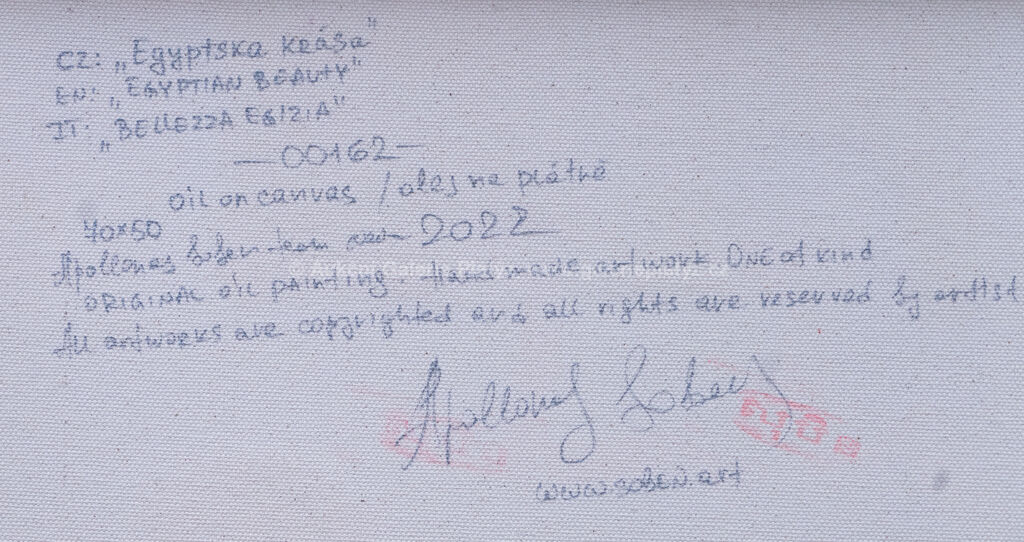 CZ: „Egyptska krása"
EN: „EGYPTIAN BEAUTY"
IT: „BELLEZZA EGIZIA"
—00162—
oil on canvas / olej na plátně
40x50
Apollonas Soben 2022
ORIGINAL oil PAINTING. Handmade artwork. ONE of kind
All artworks are copyrighted and all rights are reserved by artist
Apollonas Soben
www.SOBEN.art